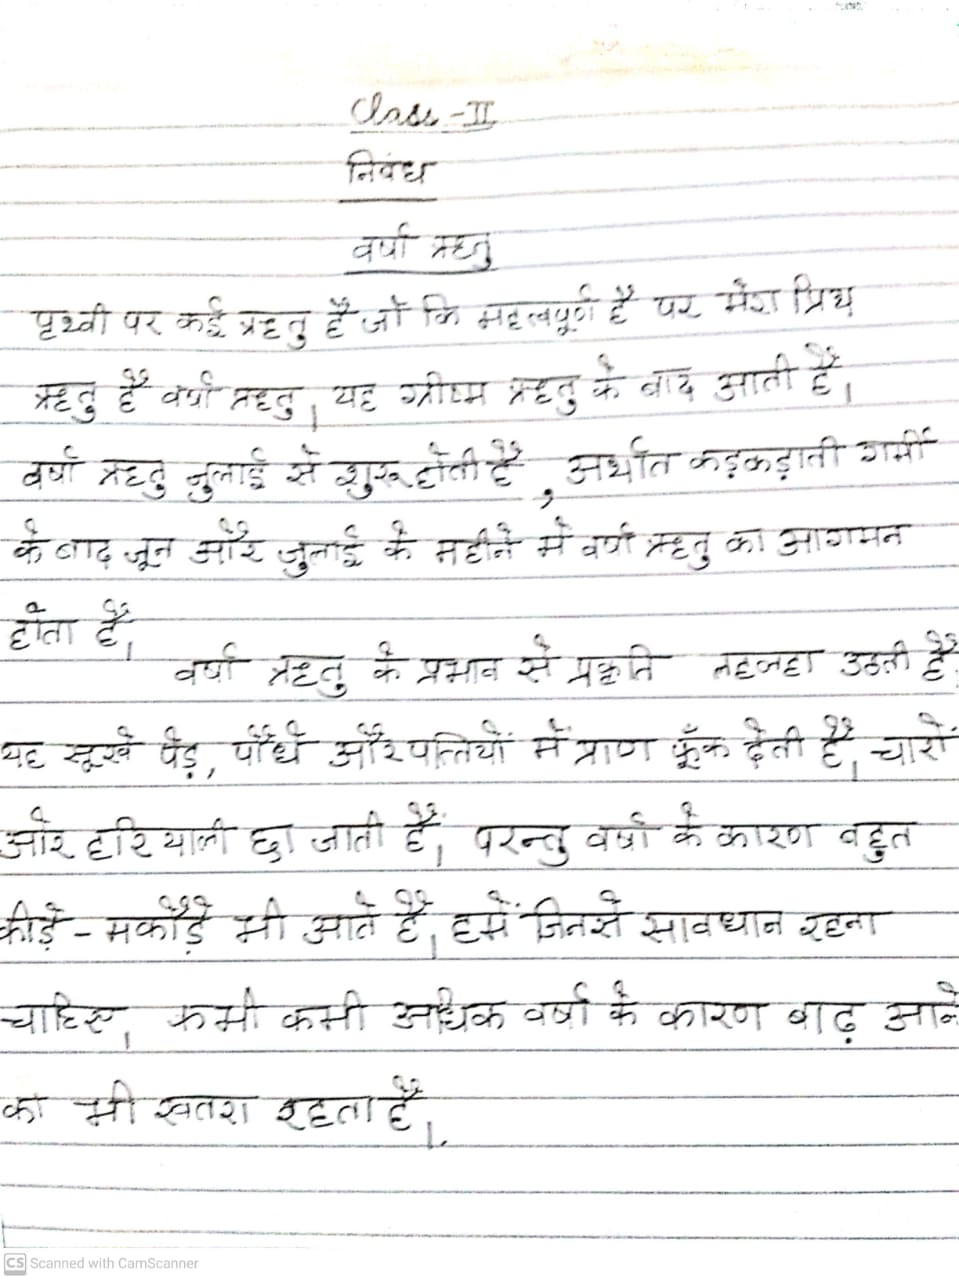 Class - II
निबंध
वर्षा ऋतु
पृथ्वी पर कई ऋतु है जो कि महत्वपूर्ण है पर मेरा प्रिय
ऋतु है वर्षा ऋतु। यह ग्रीष्म ऋतु के बाद आती है।
वर्षा ऋतु जुलाई से शुरू होती है, अर्थात कड़कड़ाती गर्मी
के बाद जून और जुलाई के महीने में वर्षा ऋतु का आगमन
होता है।
वर्षा ऋतु के प्रभाव से प्रकृति लहलहा उठती है।
यह सूखे पेड़, पौधे और पत्तियों में प्राण फूँक देती है। चारों
ओर हरियाली छा जाती हैं। परन्तु वर्षा के कारण बहुत
कीड़े - मकौड़े भी आते है। हमें जिनसे सावधान रहना
चाहिए। कभी कभी अधिक वर्षा के कारण बाढ़ आने
का भी खतरा रहता है।
CS Scanned with CamScanner